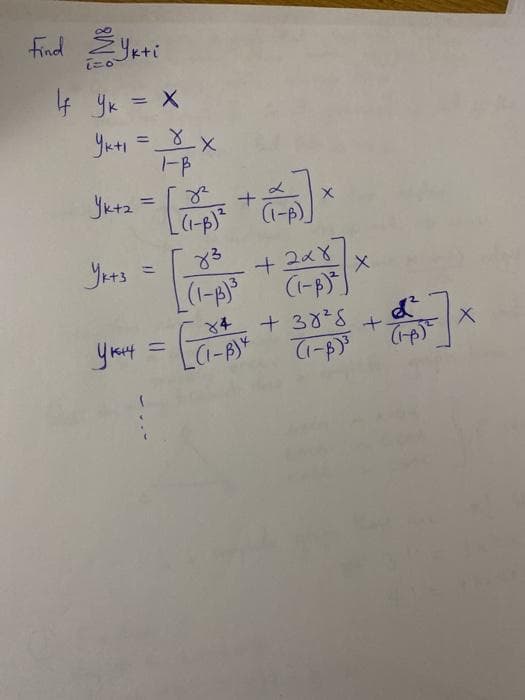 Find ∑_{i=0}^{∞} y_{k+i}
If y_k = X
y_{k+1} = γ/(1-β) X
y_{k+2} = [γ²/(1-β)² + α/(1-β)] X
y_{k+3} = [γ³/(1-β)³ + 2αγ/(1-β)²] X
y_{k+4} = [γ⁴/(1-β)⁴ + 3γ²δ/(1-β)³ + α²/(1-β)²] X
⋮